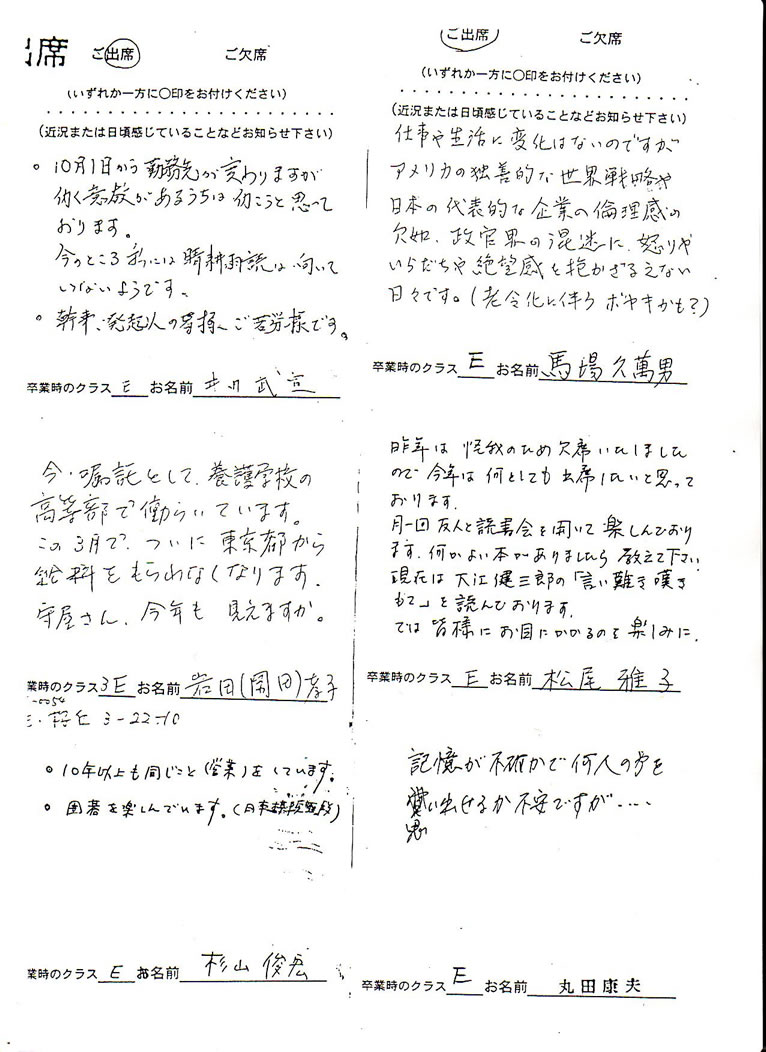 出席
ご出席 ご欠席
(いずれか一方に〇印をお付けください)
(近況または日頃感じていることなどお知らせ下さい)
。10月1日から勤務先が変わりますが
働く意欲があるうちは働こうと思って
おります。
今のところ私には晴耕雨読は向いて
いないようです。
。幹事、発起人の皆様へご苦労様です。
卒業時のクラス E お名前 井川武宣
今・嘱託として、養護学校の
高等部で働らいています。
この3月で、ついに東京都から
給料をもらわなくなります。
守屋さん、今年も見えますか。
業時のクラス 3E お名前 岩田(岡田)孝子
3-22-10
。10年以上も同じこと(営業)をしています。
。囲碁を楽しんでいます。
業時のクラス E お名前 杉山俊宏
ご出席 ご欠席
(いずれか一方に〇印をお付けください)
(近況または日頃感じていることなどお知らせ下さい)
仕事や生活に変化はないのですが
アメリカの独善的な世界戦略や
日本の代表的な企業の倫理感の
欠如、政官界の混迷に、怒りや
いらだちや絶望感を抱かざるえない
日々です。(老令化に伴うボヤキかも?)
卒業時のクラス E お名前 馬場久萬男
昨年は怪我のため欠席いたしました
ので今年は何としても出席したいと思って
おります。
月一回友人と読書会を開いて楽しんでおり
ます。何かよい本がありましたら教えて下さい
現在は大江健三郎の「言い難き嘆き
もて」を読んでおります。
では皆様にお目にかかるのを楽しみに。
卒業時のクラス E お名前 松尾雅子
記憶が不確かで何人の方を
思い出せるか不安ですが‥‥
卒業時のクラス E お名前 丸田康夫